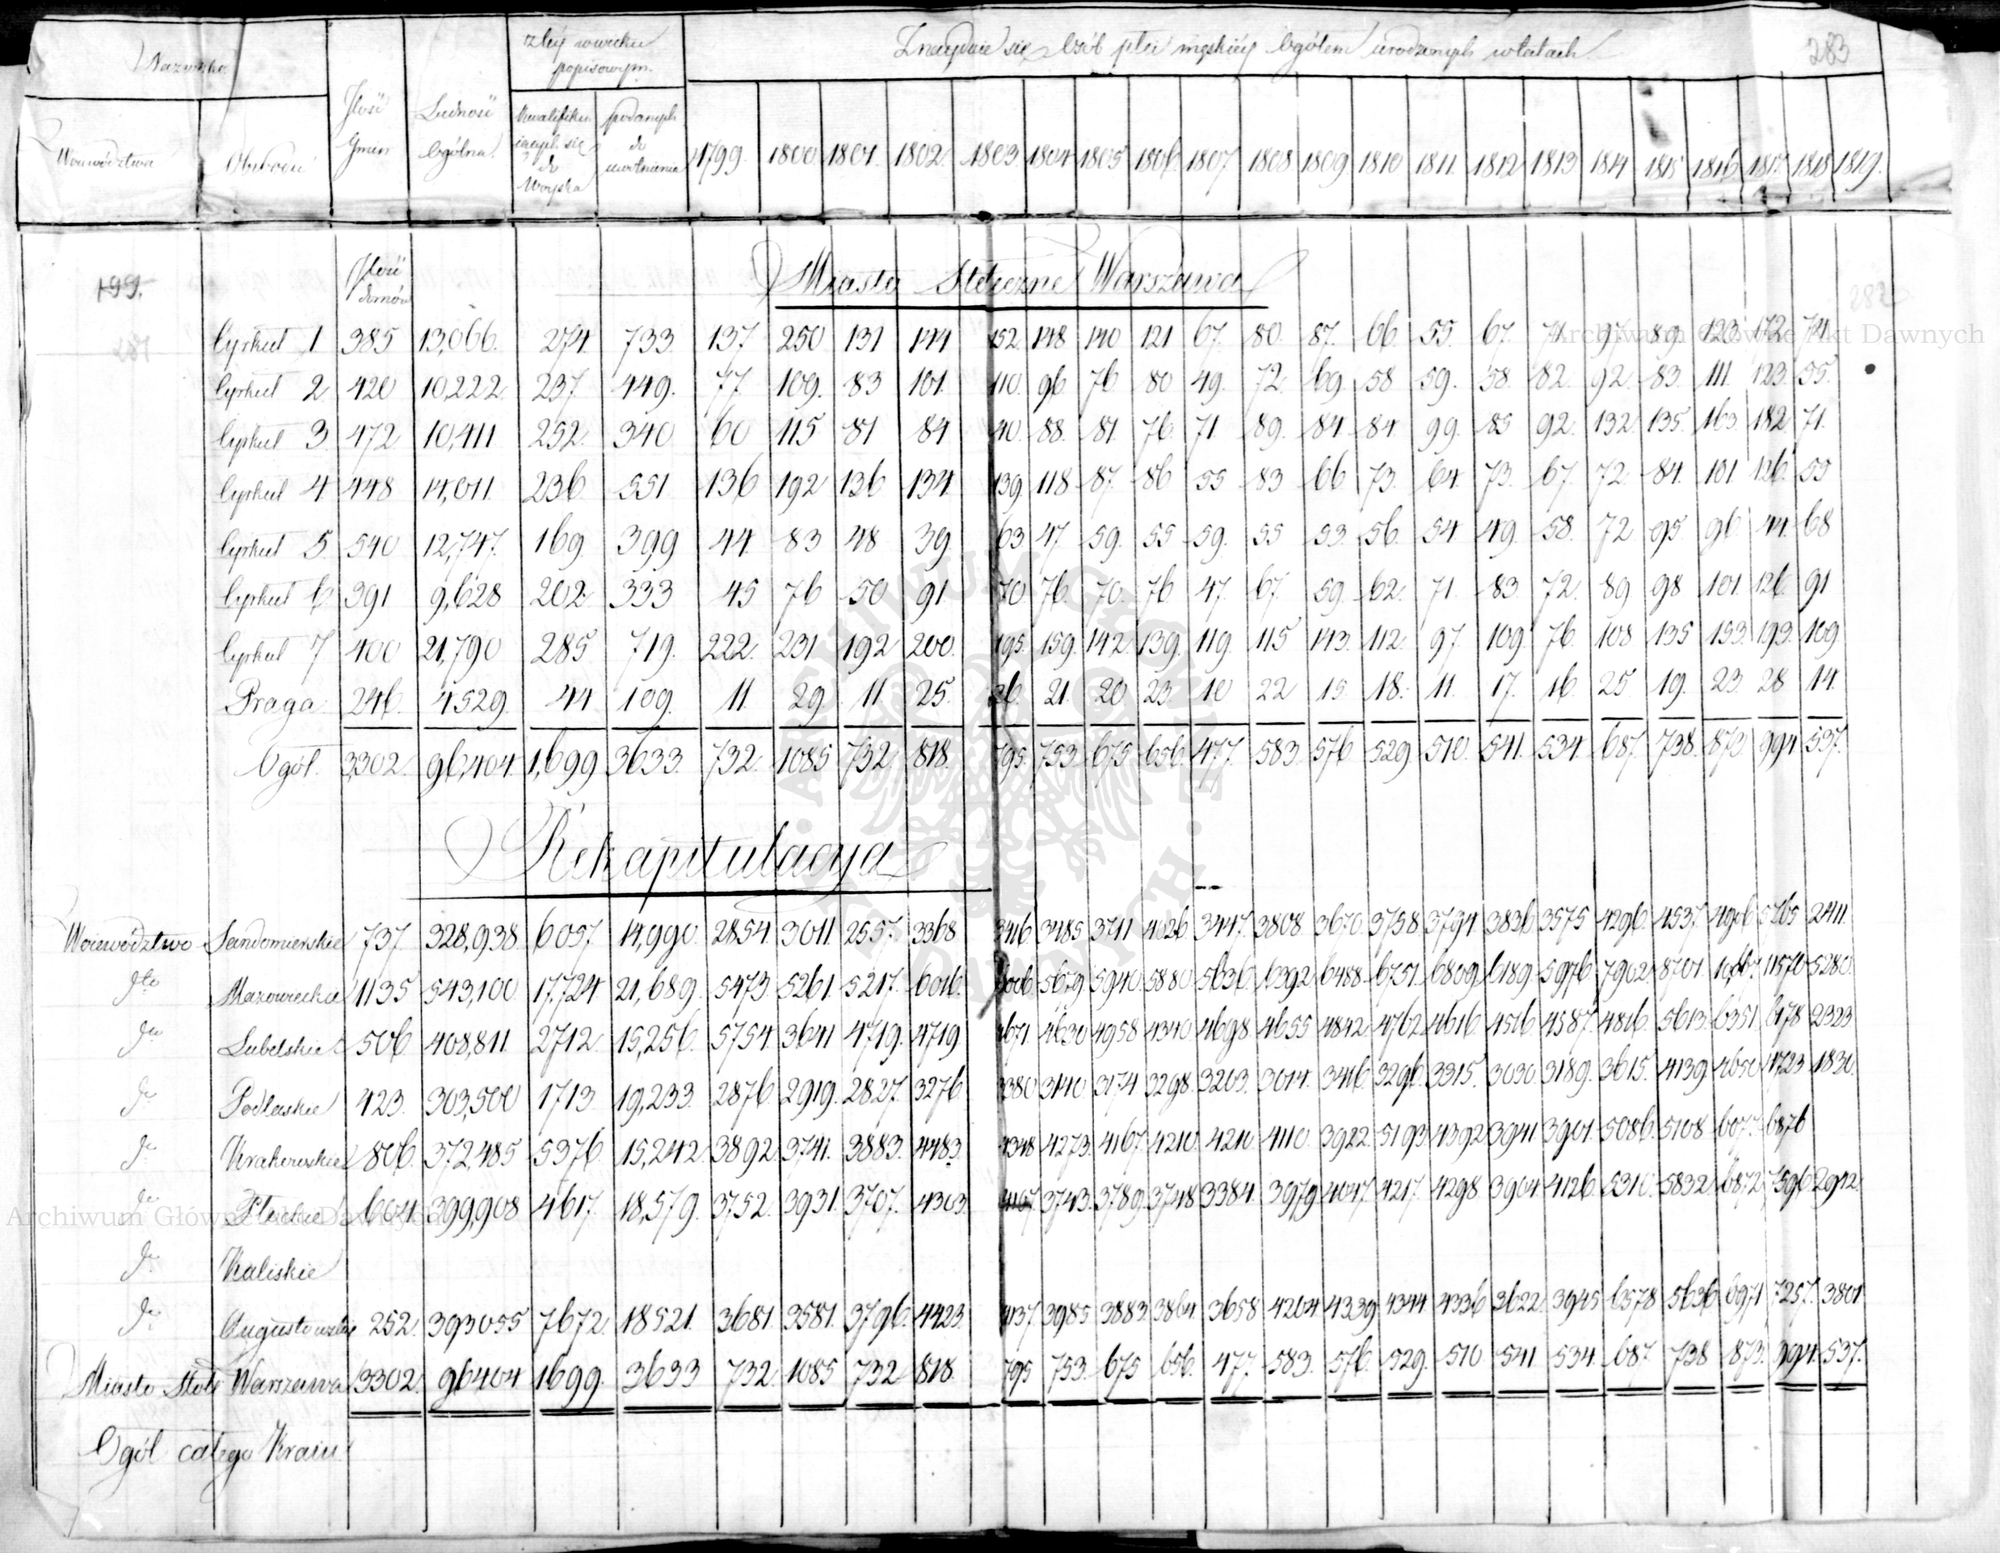 283
Nazwisko
Województwa Obwodu
Ilość Gmin
Ludność Ogólna
z tey w wieku popisowym
Kwalifiku iących się do Woyska
podanych do uwolnienia
Znayduie się osób płci męskiey ogółem urodzonych w latach
1799. 1800 1801. 1802. 1803. 1804 1805 1806. 1807. 1808 1809. 1810 1811. 1812 1813 1814 1815 1816 1817. 1818 1819.
199.
282
281
Ilość domów
Miasto Stołeczne Warszawa
Cyrkuł 1 385 13,066. 274. 733. 137. 250 131 144 152. 148 140 121 67. 80. 87. 66. 55. 67. 71. 97. 89. 123. 172. 74.
Cyrkuł 2 420 10,222. 237. 449. 77. 109. 83 101. 110. 96 76 80 49. 72. 69. 58 59. 58. 82. 92. 83. 111. 123. 55.
Cyrkuł 3. 472 10,411 252. 340. 60 115 81 84 88. 81. 76. 71. 89. 84. 84. 99. 85 92. 132. 135. 163. 182 71.
Cyrkuł 4 448 14,011. 236. 551 136 192 136 134. 139. 118 87. 86 55 83 66 73. 64. 73. 67. 72. 84. 101. 126. 55
Cyrkuł 5. 540 12,747. 169 399 44. 83 48 39 63 47 59. 55 59. 55 53. 56. 54. 49. 58. 72 95. 96. 44. 68
Cyrkuł 6. 391 9,628 202. 333 45 76 50 91. 70. 76. 70. 76. 47. 67. 59. 62. 71. 83. 72. 89 98 101. 126. 91
Cyrkuł 7. 400 21,790 285. 719. 222. 231 192 200. 195. 159. 142. 139. 119. 115 143. 112. 97. 109. 76. 108 135 153. 193. 109
Praga. 246. 4529. 44 109. 11. 29. 11 25. 26. 21. 20. 23. 10 22 15. 18. 11. 17. 16. 25. 19. 23. 28 14.
Ogół. 3302. 96,404. 1,699 3633. 732. 1085 732. 818. 795. 753. 675. 656. 477. 583. 576 529. 510. 541. 534. 687. 738. 873 994 537.
Rekapitulacya
Województwo Sandomierskie 737. 328,938 6057 14,990. 2854. 3011 2557. 3368 3416. 3485 3711 4026. 3447. 3808. 3670. 3758 3794 3836 3575 4296. 4537. 4906 5765 2411.
dto Mazowieckie 1135 543,100 17,724 21,689. 5473. 5261. 5217. 6016. 5679 5940. 5880 5636. 6392. 6488 6751. 6809. 6189. 5976. 7902. 8701 11570 5280
do Lubelskie 506 408,811 2712. 15,256. 5754. 3641 4719. 4719 4671 4630 4958 4340 4698 4655 4842 4762 4616. 4516 4587. 4816. 5613. 6351 6178 2323
do Podlaskie 423. 303,500 1713 19,233. 2876 2919. 2827. 3276. 3380 3140 3174 3298. 3203. 3014. 3416. 3296. 3315. 3030. 3189. 3615. 4139 4050 4723 1830.
do Krakowskie 806. 372,485 5376. 15,242. 3892. 3741. 3883. 4483. 4348 4273. 4167. 4210. 4210 4110. 3922. 5193. 4392 3941 3901. 5086. 5108 6077. 6876
do Płockie 604 399,908 4617 18,579. 3752. 3931. 3707. 4303. 4107. 3743. 3789. 3748 3384. 3979. 4047 4217. 4298 3904 4126. 5310. 5832. 6872. 7596. 2942.
do Kaliskie
do Augustowskie 252. 393055 7672. 18521. 3681. 3581. 3796. 4423. 4137. 3985. 3883. 3864. 3658 4204 4339 4344 4336 3622 3945 6578 5636 6971. 7257. 3801
Miasto Stołe Warszawa 3302. 96404 1699. 3633 732. 1085 732 818. 795 753. 675 656. 477. 583. 576. 529. 510 541 534. 687. 738 873. 994. 537.
Ogół całego Kraiu
Archiwum Główne Akt Dawnych
Archiwum Główne Akt Dawnych
ARCHIWUM GŁÓWNE AKT DAWNYCH